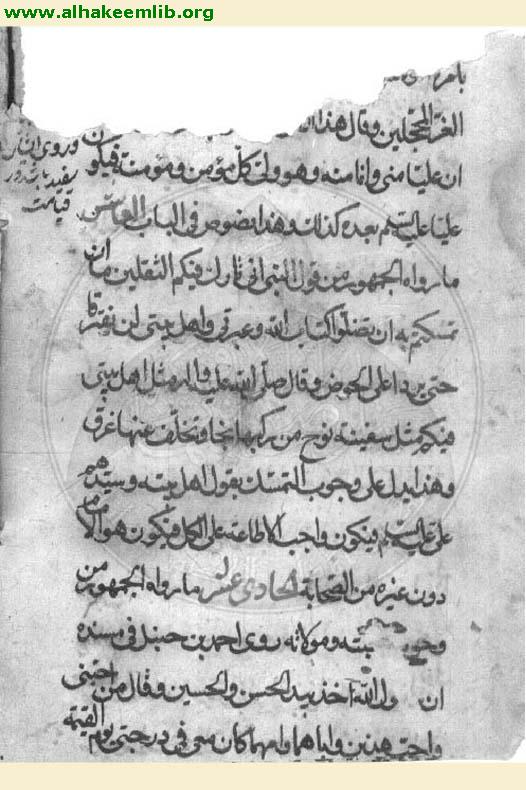 www.alhakeemlib.org
بامر
الغر المحجلين وقال هذا
ان عليا منى وانا منه وهو ولى كل مؤمن ومؤمنة فيكون
وروى ان
قيامت
على عليه السلم بعده كذلك وهذا نصوص فى الباب العاشر
ما رواه الجمهور من قول النبى انى تارك فيكم الثقلين ما ان
تمسكتم به لن تضلوا كتاب الله وعترتى واهل بيتى لن يفترقا
حتى يردا على الحوض وقال صلى الله عليه واله مثل اهل بيتى
فيكم مثل سفينة نوح من ركبها نجا وتخلف عنها غرق
وهذا يدل على وجوب التمسك بقول اهل بيته وسيدهم
على عليه السلم فيكون واجب الاطاعة على الكل فيكون هو الامام
دون غيره من الصحابة الحادى عشر ما رواه الجمهور من
وجوب ومولاته روى احمد بن حنبل فى مسنده
ان رسول الله اخذ بيد الحسن والحسين وقال من احبنى
واحب هذين واباهما وامهما كان معى فى درجتى يوم القيمة